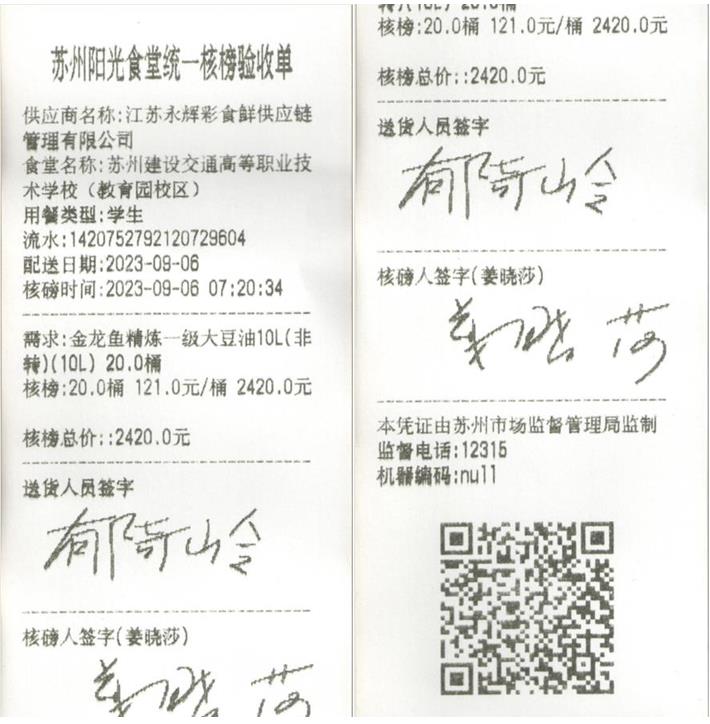 苏州阳光食堂统一核榜验收单
供应商名称:江苏永辉彩食鲜供应链
管理有限公司
食堂名称:苏州建设交通高等职业技
术学校（教育园校区）
用餐类型:学生
流水:1420752792120729604
配送日期:2023-09-06
核磅时间:2023-09-06 07:20:34
需求:金龙鱼精炼一级大豆油10L(非
转)(10L) 20.0桶
核榜:20.0桶 121.0元/桶 2420.0元
核榜总价::2420.0元
送货人员签字
核磅人签字(姜晓莎)
转)(10L) 20.0桶
核榜:20.0桶 121.0元/桶 2420.0元
核榜总价::2420.0元
送货人员签字
核磅人签字(姜晓莎)
姜晓莎
本凭证由苏州市场监督管理局监制
监督电话:12315
机器编码:null